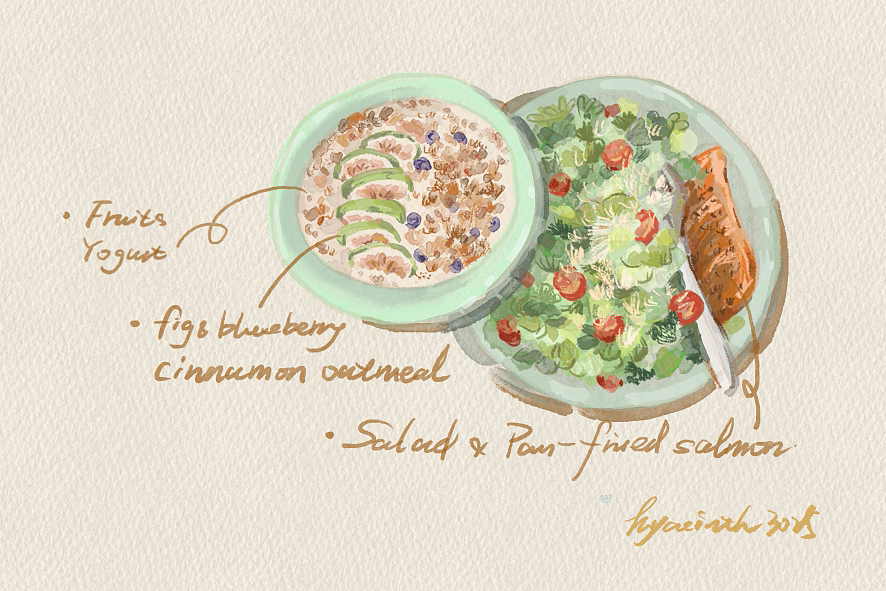 • Fruits
Yogurt
• fig & blueberry
cinnamon oatmeal
• Salad & Pan-fried salmon.
hyacinth